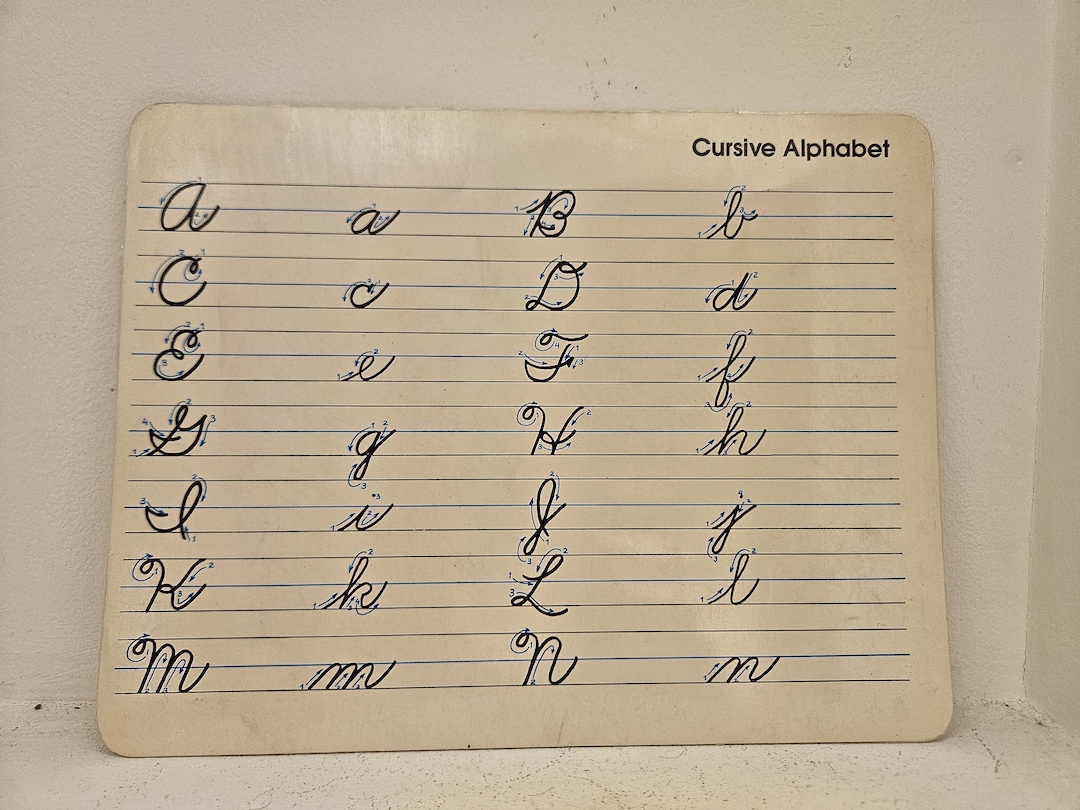 Cursive Alphabet
A a B b
C c D d
E e F f
G g H h
I i J j
K k L l
M m N n